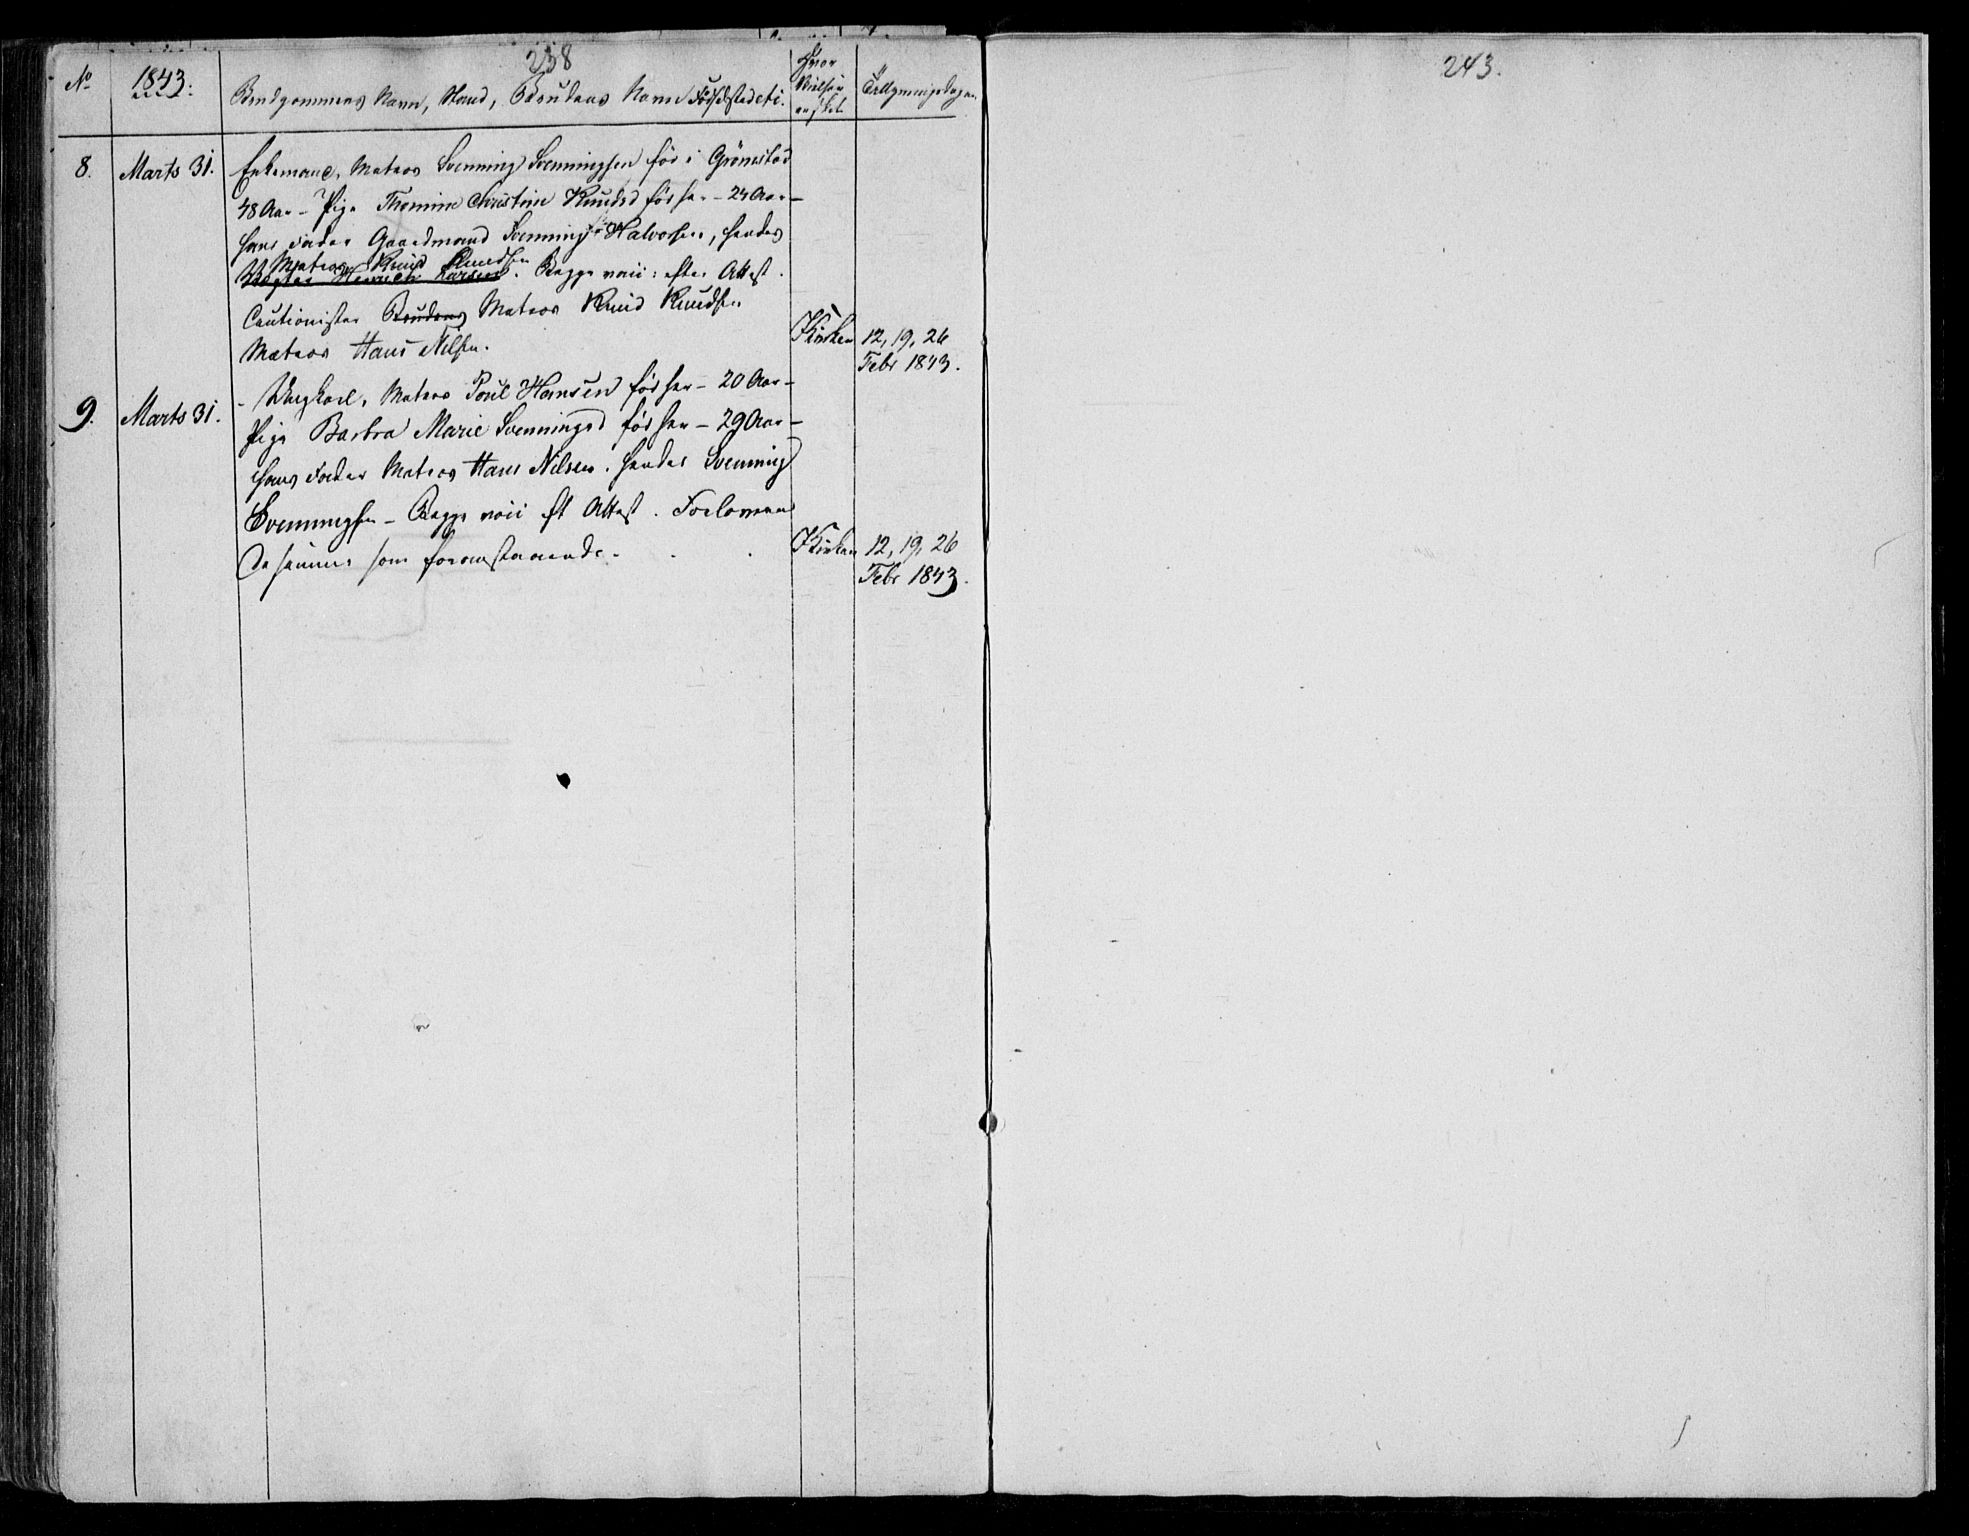 238
No 1843. Brudgommens Navn, Stand, Brudens Navn Fødselssted etc. Hvor Vielsen er skeet Tillysningsdagene
8. Marts 31. Enkemand, Matros Svenning Svenningsen fød i Grømstad
48 Aar – Pige Thomine Christine Knudsd fød her – 24 Aar –
hans Fader Gaardmand Svenning Halvorsen, hendes
Matros Knud Knudsen
Værge Henrich Larsen. Begge vacc: efter Attest.
Cautionister Brudens Matros Knud Knudsen
Matros Hans Nilsen. Kirken 12, 19, 26
Febr 1843.
9. Marts 31. Ungkarl, Matros Poul Hansen fød her – 20 Aar –
Pige Barbra Marie Svenningsd fød her – 29 Aar –
hans Fader Matros Hans Nilsen. hendes Svenning
Svenningsen – Begge vacc eft Attest. Forloverne
De samme som foranstaaende. Kirken 12, 19, 26
Febr 1843.
243.